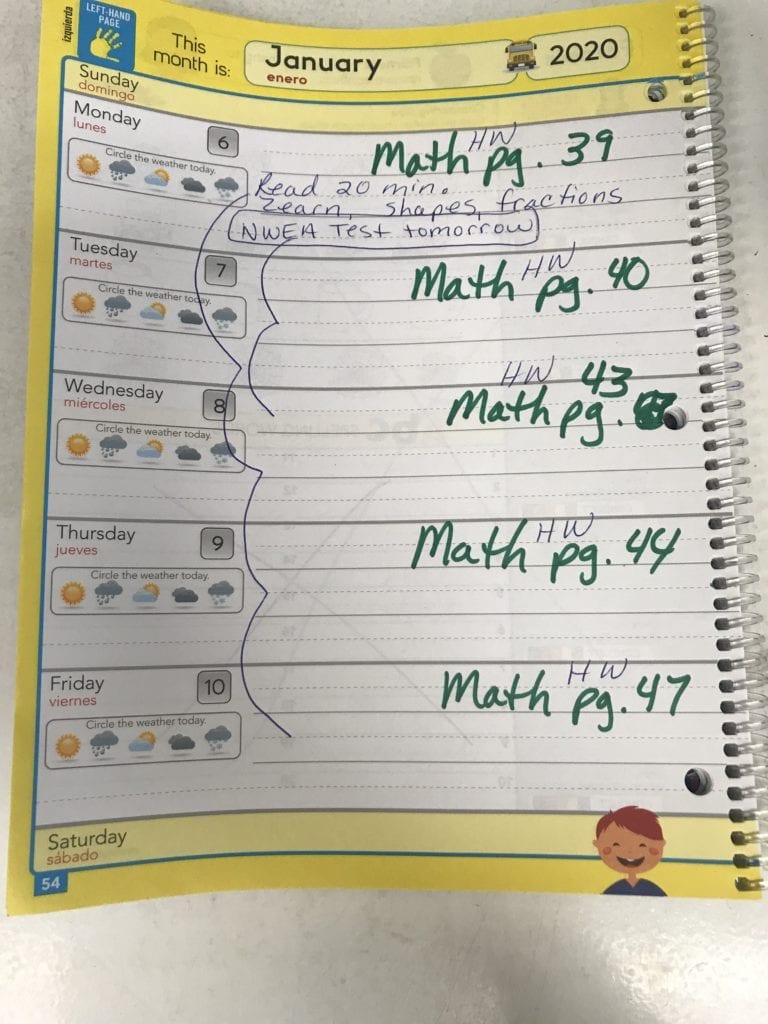 izquierda
LEFT-HAND
PAGE
This
month is:
January
enero
2020
Sunday
domingo
Monday
lunes
6
Circle the weather today.
HW
Math pg. 39
Read 20 min.
Learn, shapes, fractions
NWEA Test tomorrow
Tuesday
martes
7
Circle the weather today.
HW
Math pg. 40
Wednesday
miércoles
8
Circle the weather today.
HW 43
Math pg.
Thursday
jueves
9
Circle the weather today.
HW
Math pg. 44
Friday
viernes
10
Circle the weather today.
HW
Math pg. 47
Saturday
sábado
54